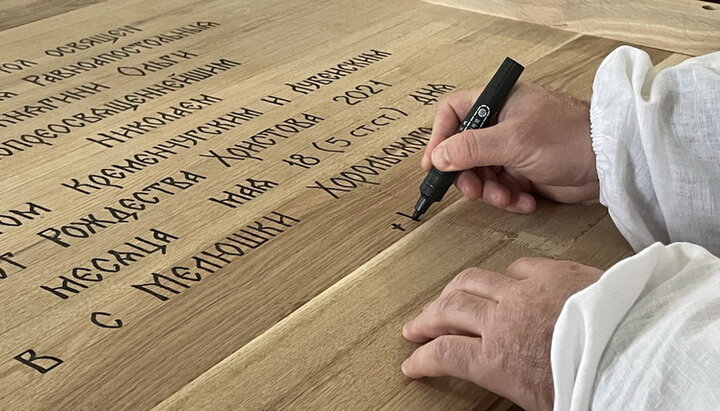 ол освящен
Равноапостольныя
нягини Ольги
опреосвященнейшим
Николаем
ом Кременчугским и Лубенским
от Рождества Христова 2021
месяца мая 18 (5 ст.ст) дня
В с Мелюшки Хорольского